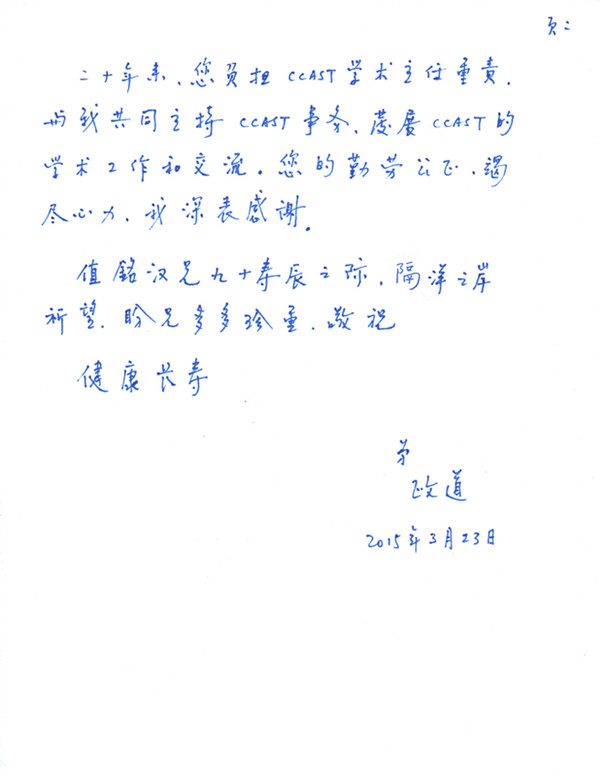 页二
二十年来、您負担 CCAST 学术主任重責、
与我共同主持 CCAST 事务、发展 CCAST 的
学术工作和交流。您的勤劳公正、竭
尽心力、我深表感謝。
值銘汉兄九十寿辰之际、隔洋之岸
祈望、盼兄多多珍重、敬祝
健康长寿
弟
政道
2015年3月23日